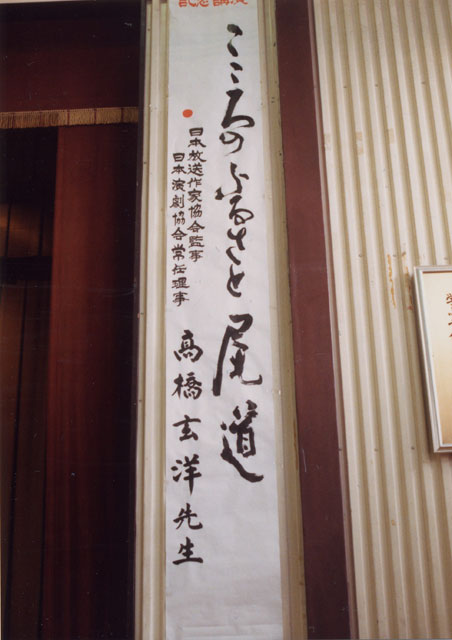 記念講演
こころのふるさと尾道
日本放送作家協会監事
日本演劇協会常任理事
高橋玄洋先生